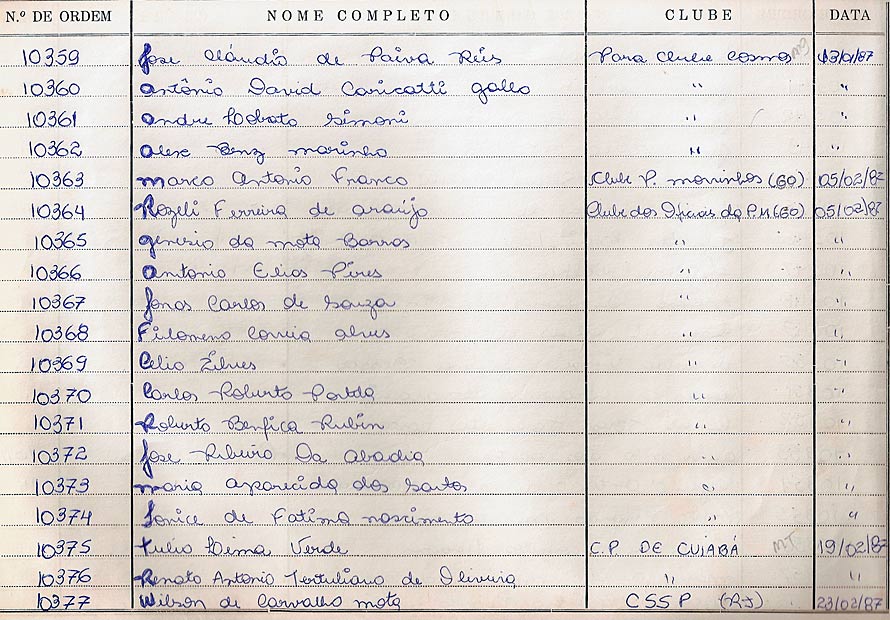 N.º DE ORDEM NOME COMPLETO CLUBE DATA
10359 Jose Cláudio de Paiva Réis Para Clube Cosmos MG 13/01/87
10360 Antônio David Caricatti Gallo " "
10361 Andre Lobato Simoni " "
10362 Alex Benz Marinho " "
10363 Marco Antonio Franco Clube P. Morrinhos (GO) 05/02/87
10364 Rozeli Ferreira de Araújo Clube dos Oficiais da P.M (GO) 05/02/87
10365 Genesio da Mota Barros " "
10366 Antonio Elias Pires " "
10367 Jonas Carlos de Souza " "
10368 Filomeno Correia Alves " "
10369 Celio " "
10370 Carlos Roberto " "
10371 Roberto Benfica Rubin " "
10372 Jose Ribeiro Da Abadia " "
10373 Maria Aparecida dos Santos " "
10374 Jonice de Fatima Nascimento " "
10375 Tulio Lima Verde C.P. DE CUIABÁ MT 19/02/87
10376 Renato Antonio Tertuliano de Oliveira " "
10377 Wilson de Carvalho Mota CSSP (RJ) 23/02/87